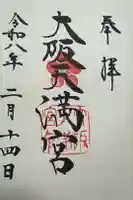 奉拝
大阪天満宮
令和八年 二月十四日